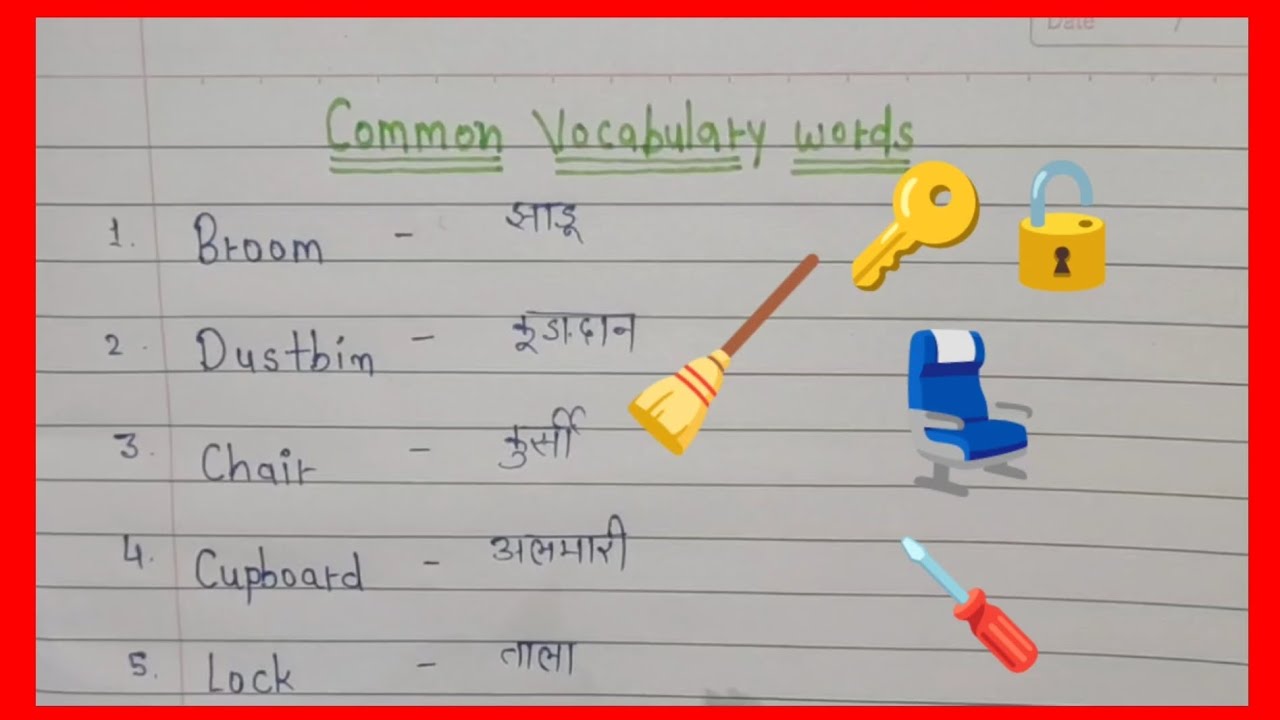 Date /
Common Vocabulary words
1. Broom - झाडू
2. Dustbin - कूडादान
3. Chair - कुर्सी
4. Cupboard - अलमारी
5. Lock - ताला